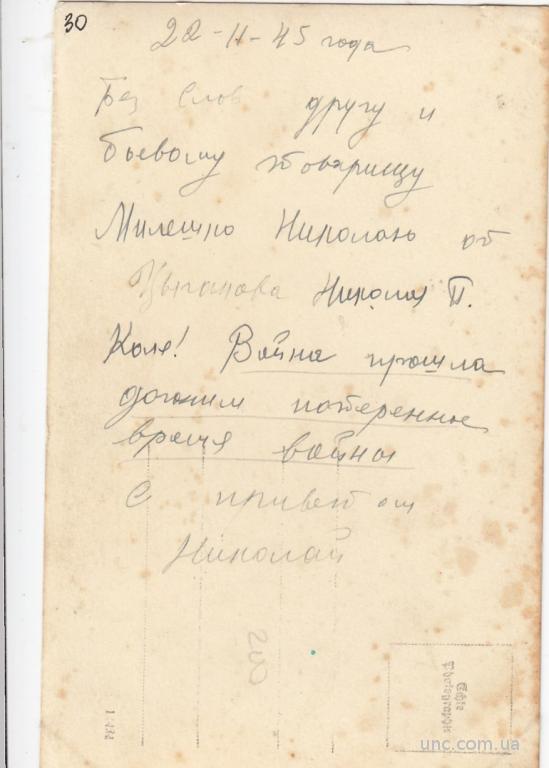 30
22-II-45 года
Без слов другу и
боевому товарищу
Милешко Николаю от
Цыганова Николая П.
Коля! Война прошла
догоним потеренные
время войны
С приветом
Николай
200
Echte
Photographie
unc.com.ua